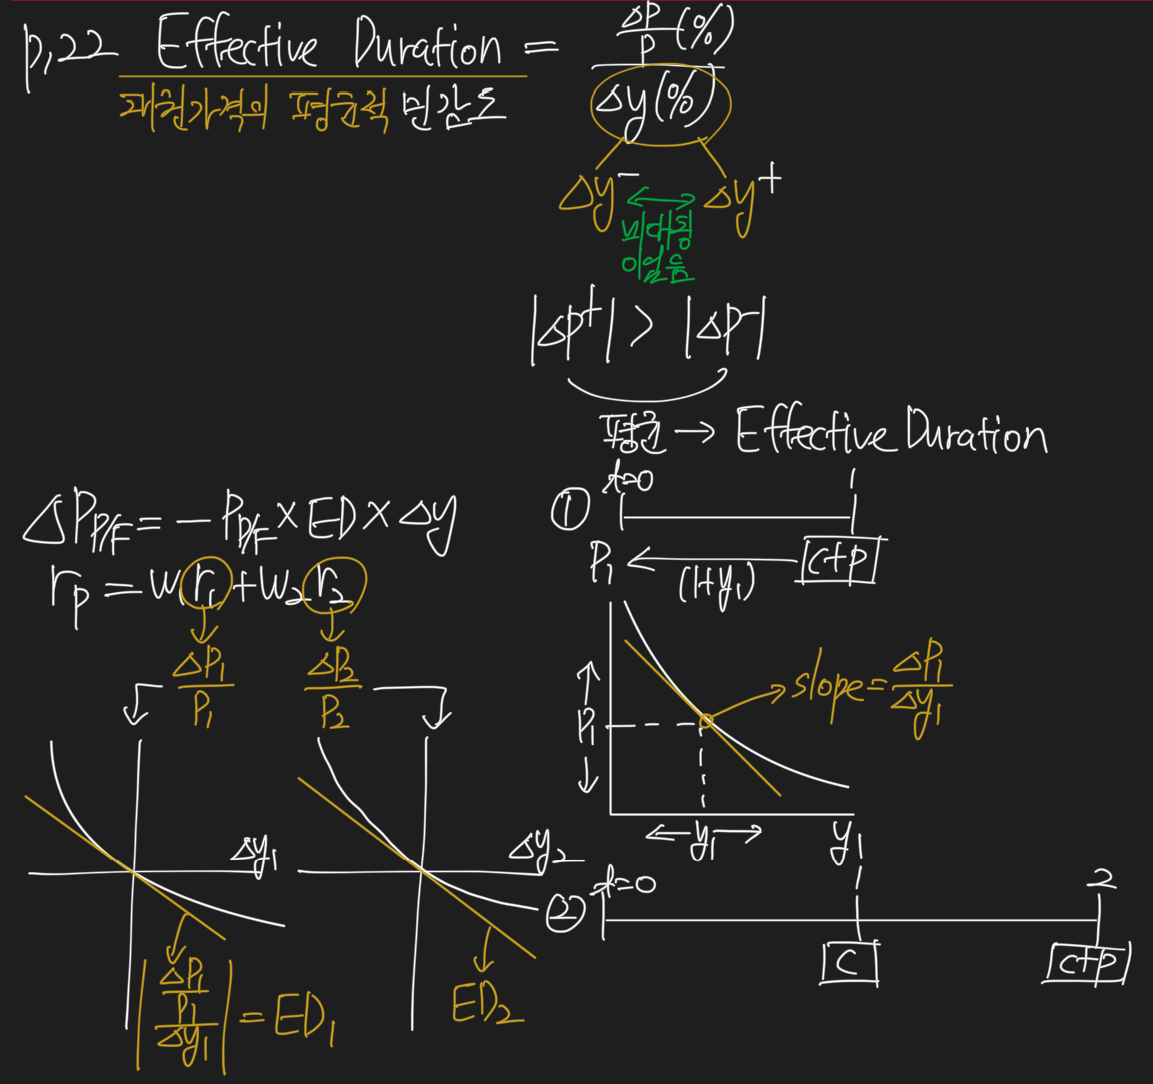 p.22 Effective Duration = ΔP/P (%) / Δy(%)
채권가격의 평균적 민감도
Δy⁻ ↔ Δy⁺
비대칭
|ΔP⁺| > |ΔP⁻|
평균 → Effective Duration
ΔP_P/F = - P_P/F × ED × Δy
r_p = w₁r₁ + w₂r₂
ΔP₁/P₁
ΔP₂/P₂
Δy₁
Δy₂
|ΔP₁/P₁ / Δy₁| = ED₁
ED₂
① t=0 1
P₁ ← (1+y₁) C+P
P₁
slope = ΔP₁/Δy₁
← y₁ → y₁
② t=0 1 2
C C+P